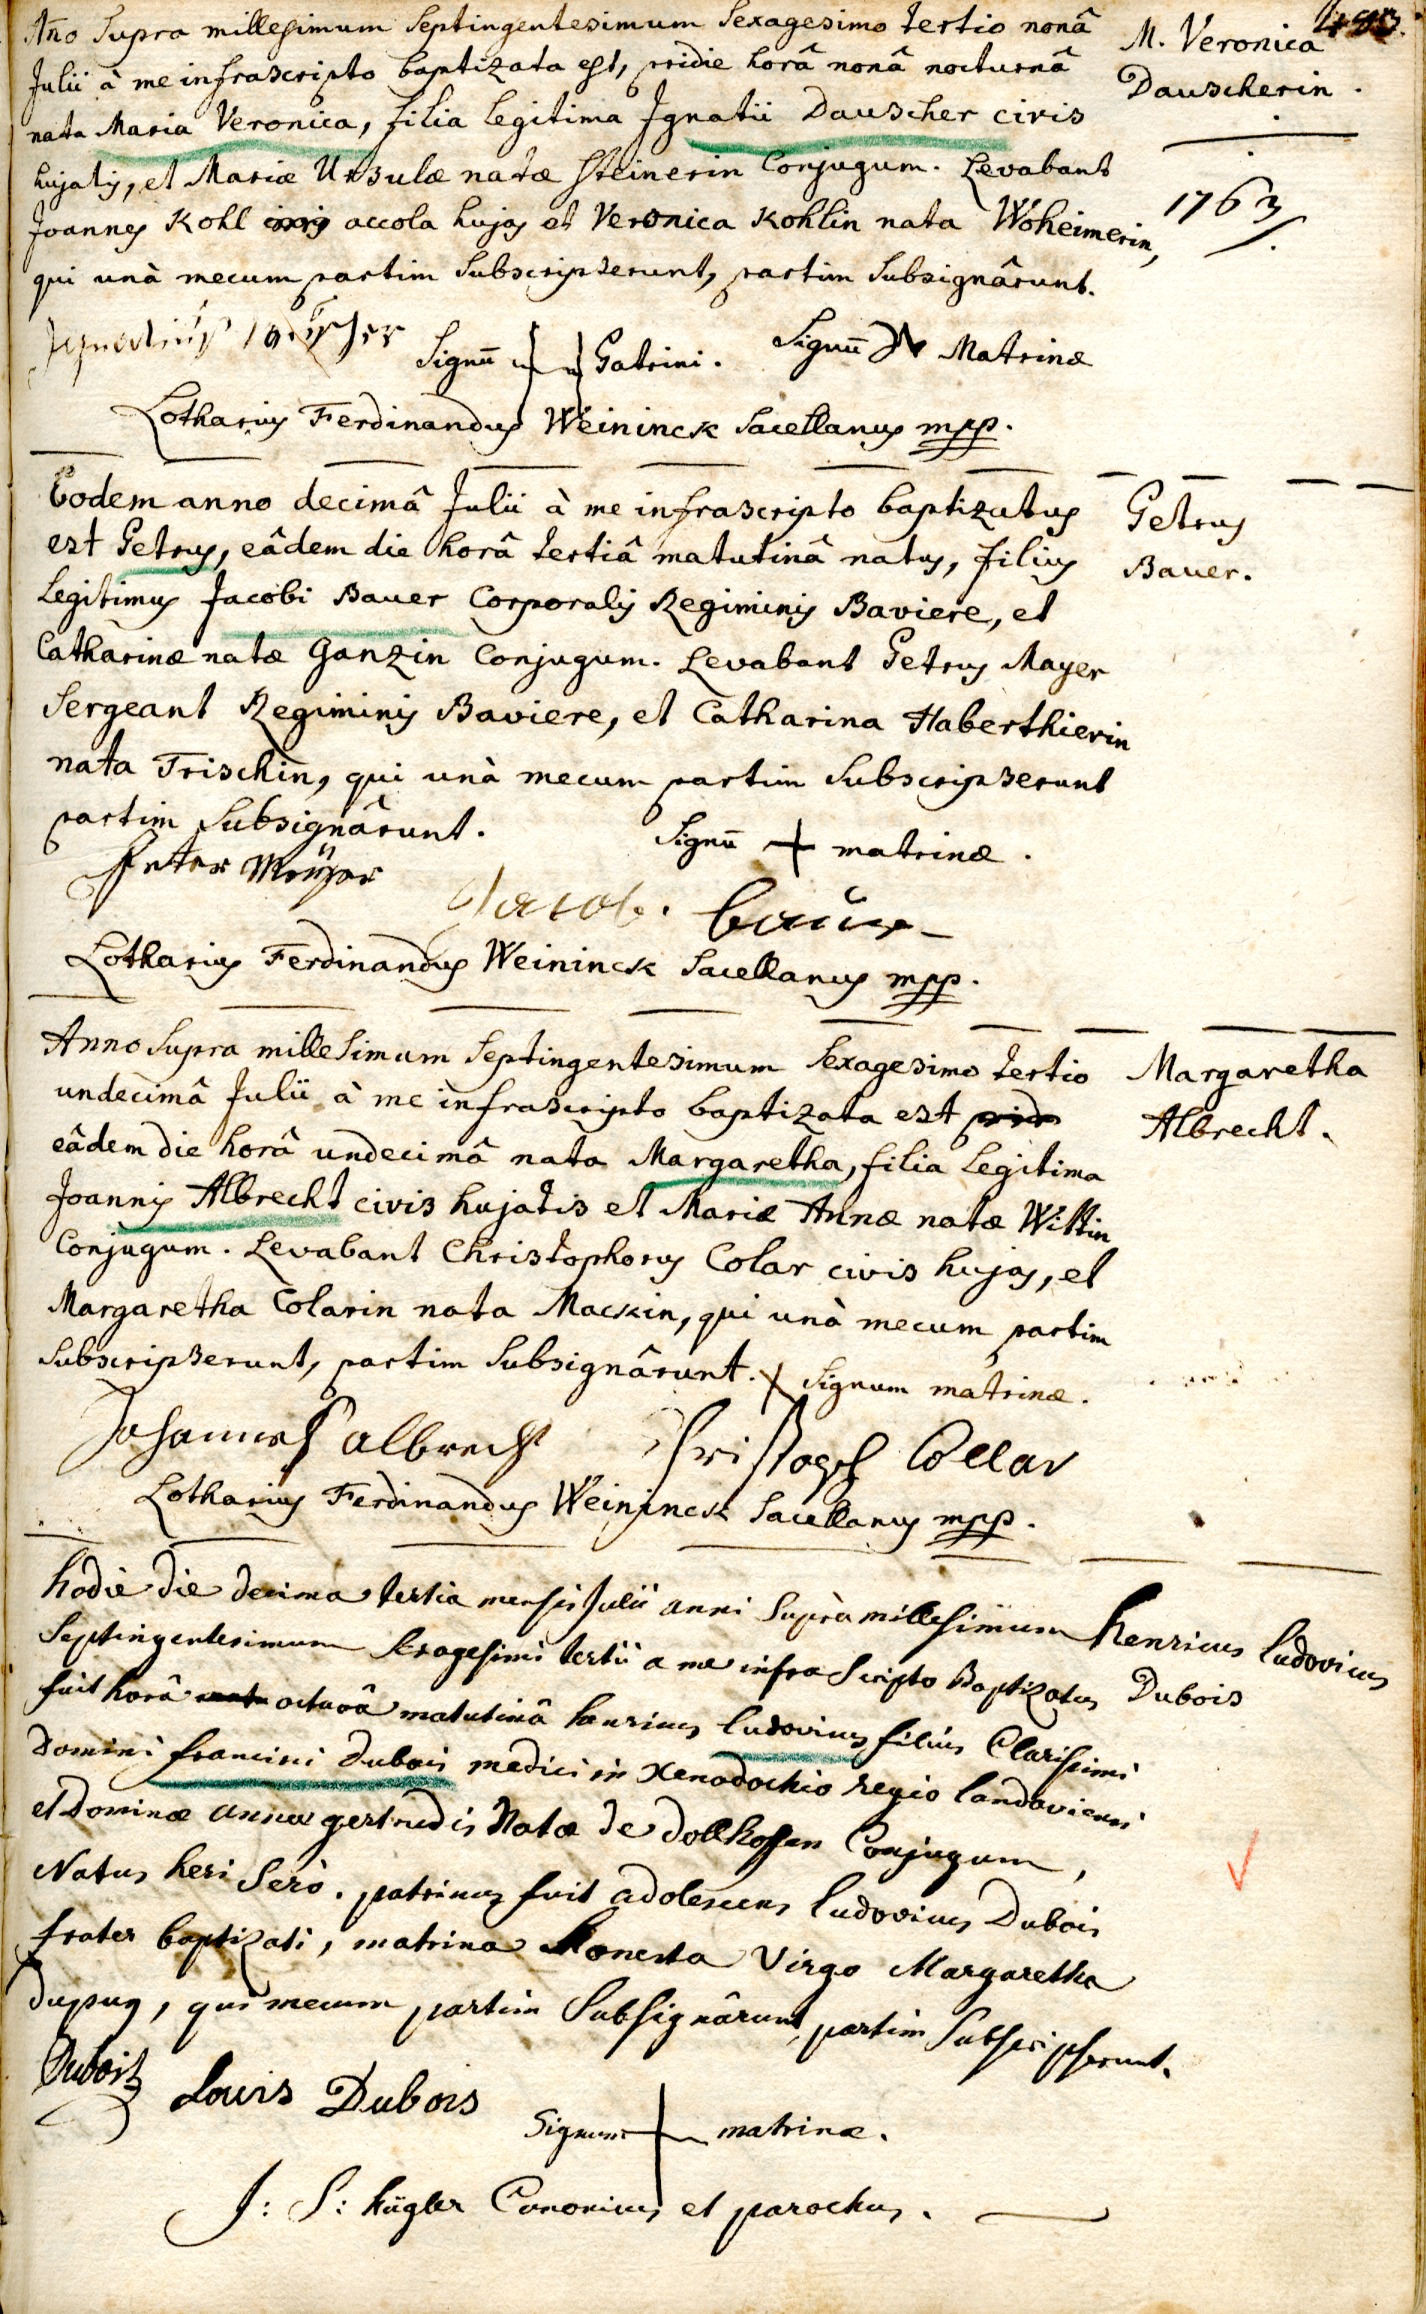 483.
Año Supra millesimum Septingentesimum Sexagesimo tertio nonâ
Julii à me infrascripto baptizata est, pridie horâ nonâ nocturnâ
nata Maria Veronica, filia legitima Ignatii Dauscher civis
hujatis, et Mariæ Ursulæ natæ Steinerin Conjugum. Levabant
Joannes Kohl accola hujas et Veronica Kohlin nata Woheimerin,
qui unà mecum partim Subscripserunt, partim Subsignârunt.
M. Veronica
Dauscherin.
1763
Signū Patrini. Signū Matrinæ
Lotharius Ferdinandus Weininck Sacellanus mpp.
Eodem anno decimâ Julii à me infrascripto baptizatus
est Petrus, eâdem die horâ tertiâ matutinâ natus, filius
Legitimus Jacobi Bauer Corporalis Regiminis Baviere, et
Catharinæ natæ Ganzin Conjugum. Levabant Petrus Mayer
Sergeant Regiminis Baviere, et Catharina Haberthierin
nata Frischin, qui unà mecum partim Subscripserunt
partim Subsignârunt.
Petrus
Bauer.
Signū + matrinæ.
Peter Meÿer
Jacob. baur
Lotharius Ferdinandus Weininck Sacellanus mpp.
Anno Supra millesimum Septingentesimum Sexagesimo tertio
undecimâ Julii à me infrascripto baptizata est
eâdem die horâ undecimâ nata Margaretha, filia legitima
Joannis Albrecht civis hujatis et Mariæ Annæ natæ Wittin
Conjugum. Levabant Christophorus Colar civis hujas, et
Margaretha Colarin nata Mackin, qui unà mecum partim
Subscripserunt, partim Subsignârunt. + Signum matrinæ.
Margaretha
Albrecht.
Johannes albrecht Christoph Collar
Lotharius Ferdinandus Weininck Sacellanus mpp.
hodie die decima tertia mensis Julii anni Suprà millesimum
Septingentesimum Sexagesimi tertii a me infra Scripto Baptizatus
fuit horâ octavâ matutinâ henricus ludovicus filius Clarissimi
Domini francisci Dubois medici in Xenodochio regio landaviensi
et Dominæ annæ gertrudis Natæ de Dollhoffen Conjugum,
Natus heri Serò. patrinus fuit adolescens ludovicus Dubois
frater baptizati, matrina Honesta Virgo Margaretha
dupuy, qui mecum partim Subsignârunt, partim Subscripserunt.
henricus ludovicus
Dubois
Dubois Louis Dubois
Signum + matrinæ.
J: S: hügler Canonicus et parochus.